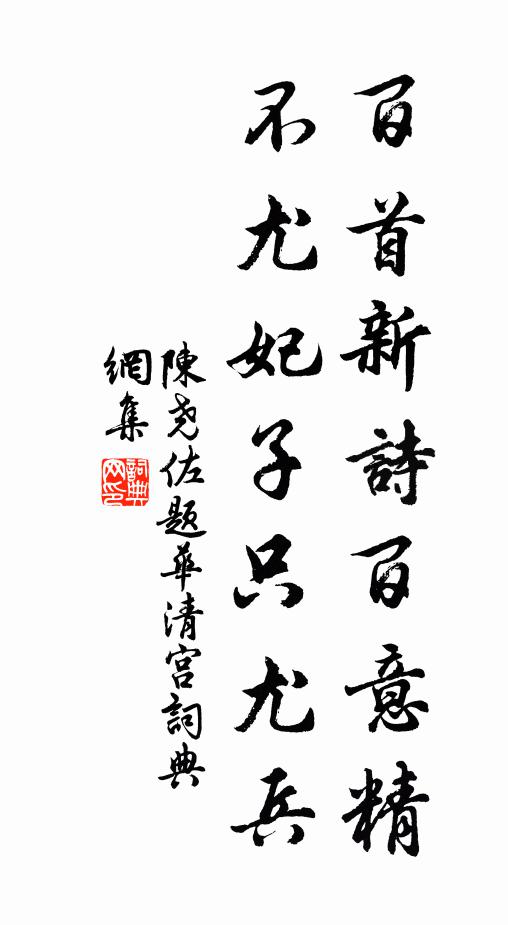 百首新詩百意精
不尤妃子只尤兵
陳堯佐題華清宮詞典
網集
詞典網印